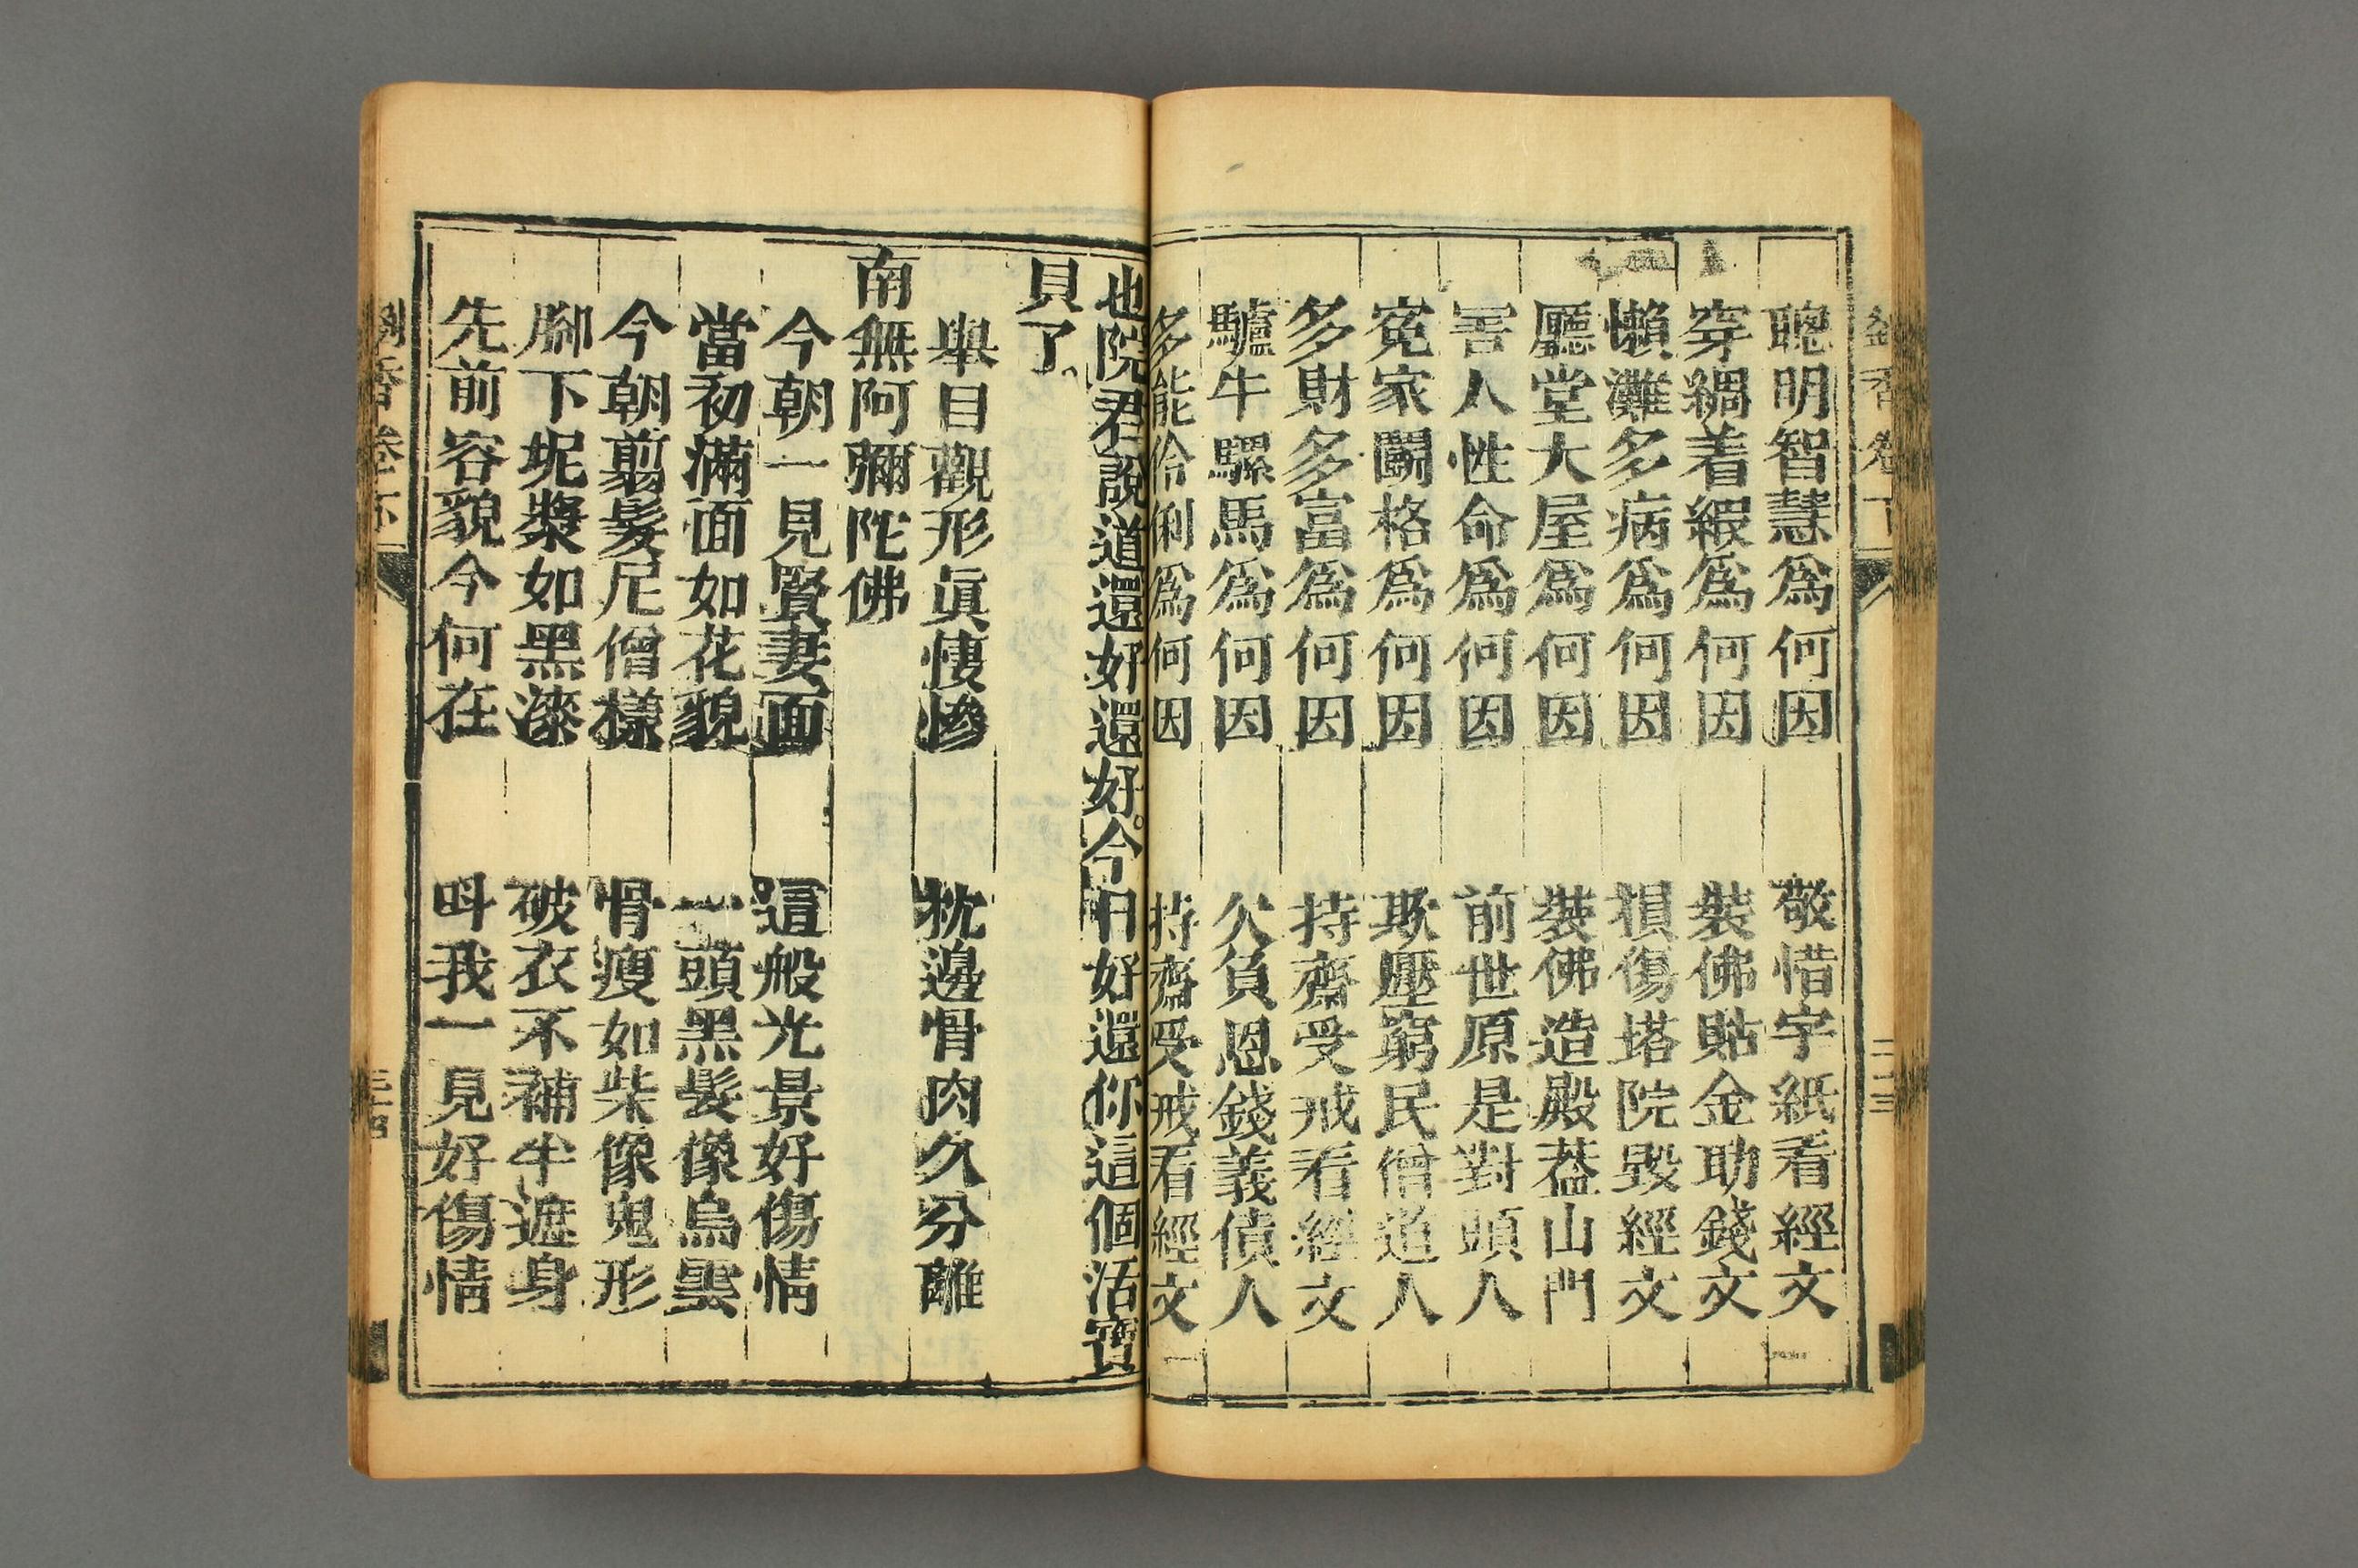 聰明智慧爲何因　敬惜字紙看經文
穿綢着緞爲何因　裝佛貼金助錢文
懶灘多病爲何因　損傷塔院毀經文
廳堂大屋爲何因　裝佛造殿葢山門
害人性命爲何因　前世原是對頭人
寃家鬭格爲何因　欺壓窮民僧道人
多財多富爲何因　持齋受戒看經文
驢牛騾馬爲何因　欠負恩錢義債人
多能伶俐爲何因　持齋受戒看經文
也院君說道還好還好。今日好還你這個活寶
貝了、
舉目觀形眞悽慘　枕邊骨肉久分離
南無阿彌陀佛
今朝一見賢妻面　這般光景好傷情
當初滿面如花貌　一頭黑髮像烏雲
今朝翦髮尼僧樣　骨瘦如柴像鬼形
腳下坭漿如黑漆　破衣不補半遮身
先前容貌今何在　呌我一見好傷情